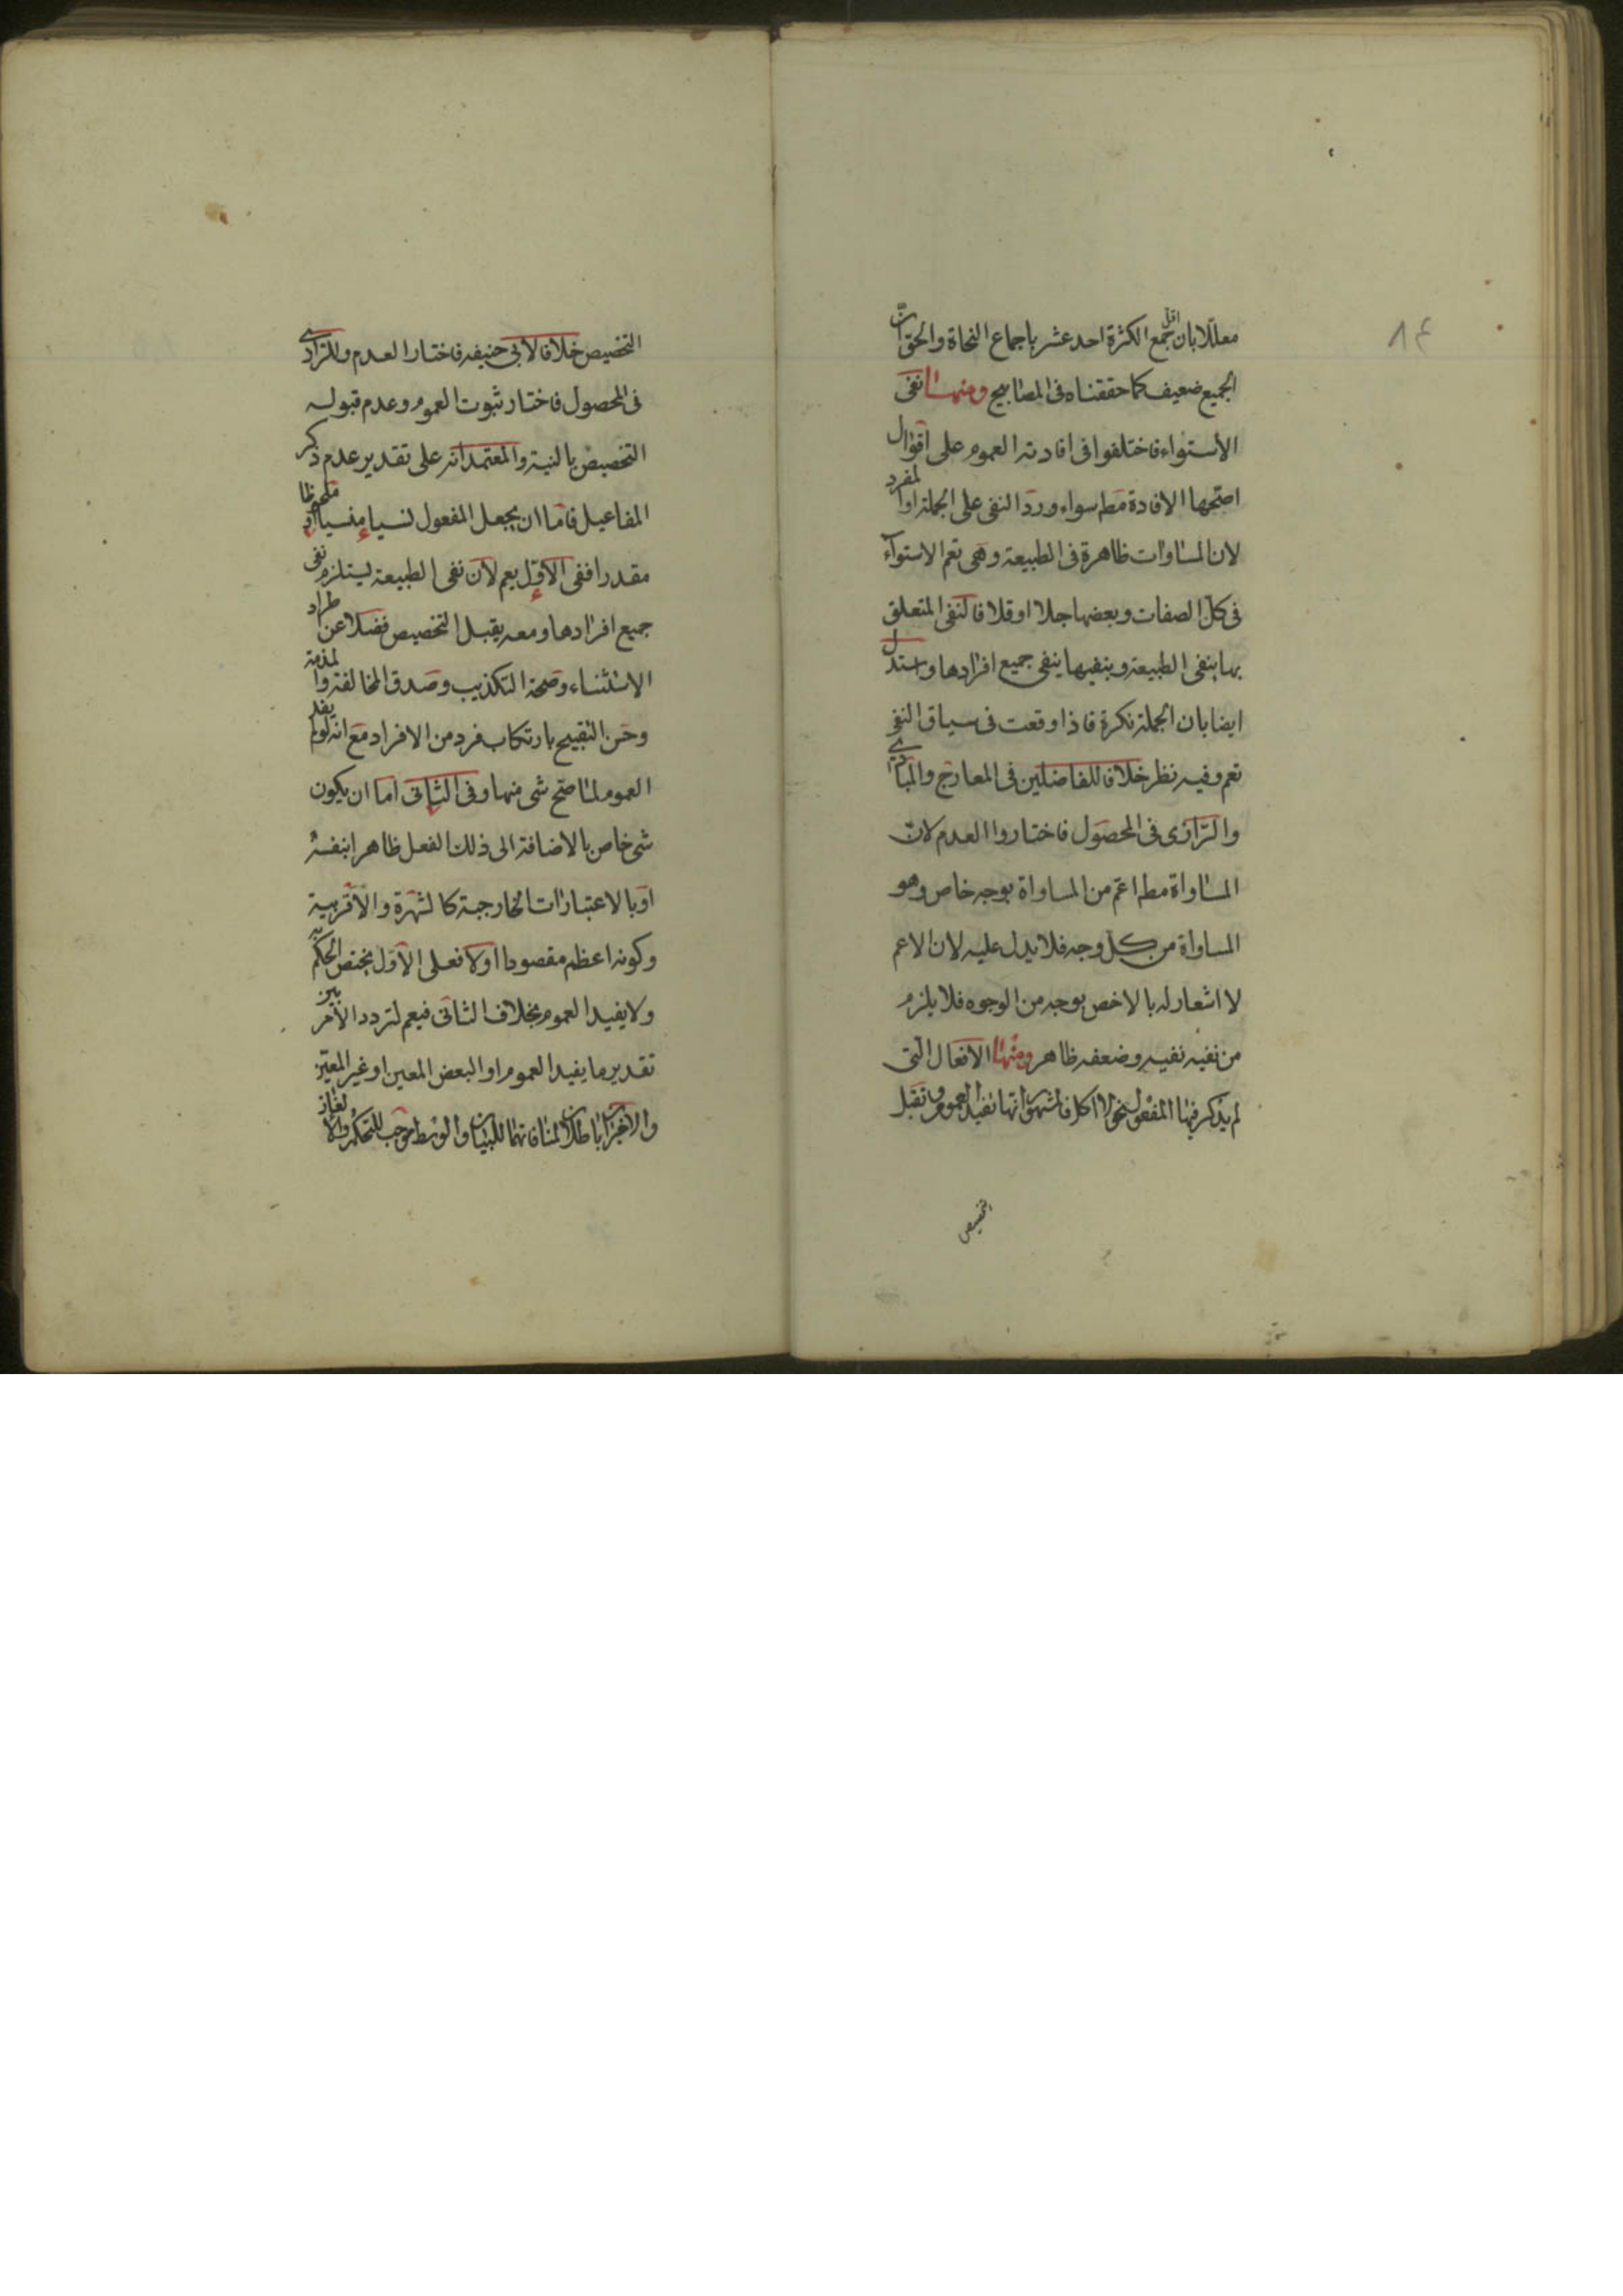 ٨٤
معللا بان اقل جمع الكثرة احد عشر باجماع النحاة والحق ان
الجميع ضعيف كما حققناه فى المصابيح ومنها نفى
الاستواء فاختلفوا فى افادته العموم على اقوال
اصحها الافادة مطم سواء ورد النفى على الجملة او المفرد
لان المساوات ظاهرة فى الطبيعة وهى تعم الاستواء
فى كل الصفات وبعضها جلا او قلا فالنفى المتعلق
بها ينفى الطبيعة وبنفيها ينفى جميع افرادها واستدل
ايضا بان الجملة نكرة فاذا وقعت فى سياق النفى
تعم وفيه نظر خلافا للفاضلين فى المعارج والمبادى
والرازى فى المحصول فاختاروا العدم لان
المساواة مطم اعم من المساواة بوجه خاص وهو
المساواة من كل وجه فلا يدل عليه لان الاعم
لا اشعار له بالاخص بوجه من الوجوه فلا يلزم
من نفيه نفيه وضعفه ظاهر ومنها الافعال التى
لم يذكر فيها المفعول نحو لا اكل فالمشهور انها تفيد العموم وتقبل
التخصيص
التخصيص خلافا لابى حنيفه فاختار العدم وللرازى
فى المحصول فاختار ثبوت العموم وعدم قبوله
التخصيص بالنية والمعتمد انه على تقدير عدم ذكر
المفاعيل فاما ان يجعل المفعول نسيا منسيا او ملحوظا
مقدرا ففى الاول يعم لان نفى الطبيعة يستلزم نفى
جميع افرادها ومعه يقبل التخصيص فضلا عن اطراد
الاستثناء وصحة التكذيب وصدق المخالفة والمذمة
وحسن التقبيح بارتكاب فرد من الافراد مع انه لو لم يفد
العموم لما صح شى منها وفى الثانى اما ان يكون
شى خاص بالاضافة الى ذلك الفعل ظاهرا بنفسه
او بالاعتبارات الخارجية كالشهرة والاقربية
وكونه اعظم مقصودا او لا فعلى الاول يختص الحكم به
ولا يفيد العموم بخلاف الثانى فيعم لتردد الامر بين
تقدير ما يفيد العموم او البعض المعين او غير المعين
والاخيران باطلان لمنافاتهما للبيان والوسط موجب للتحكم والالغاز